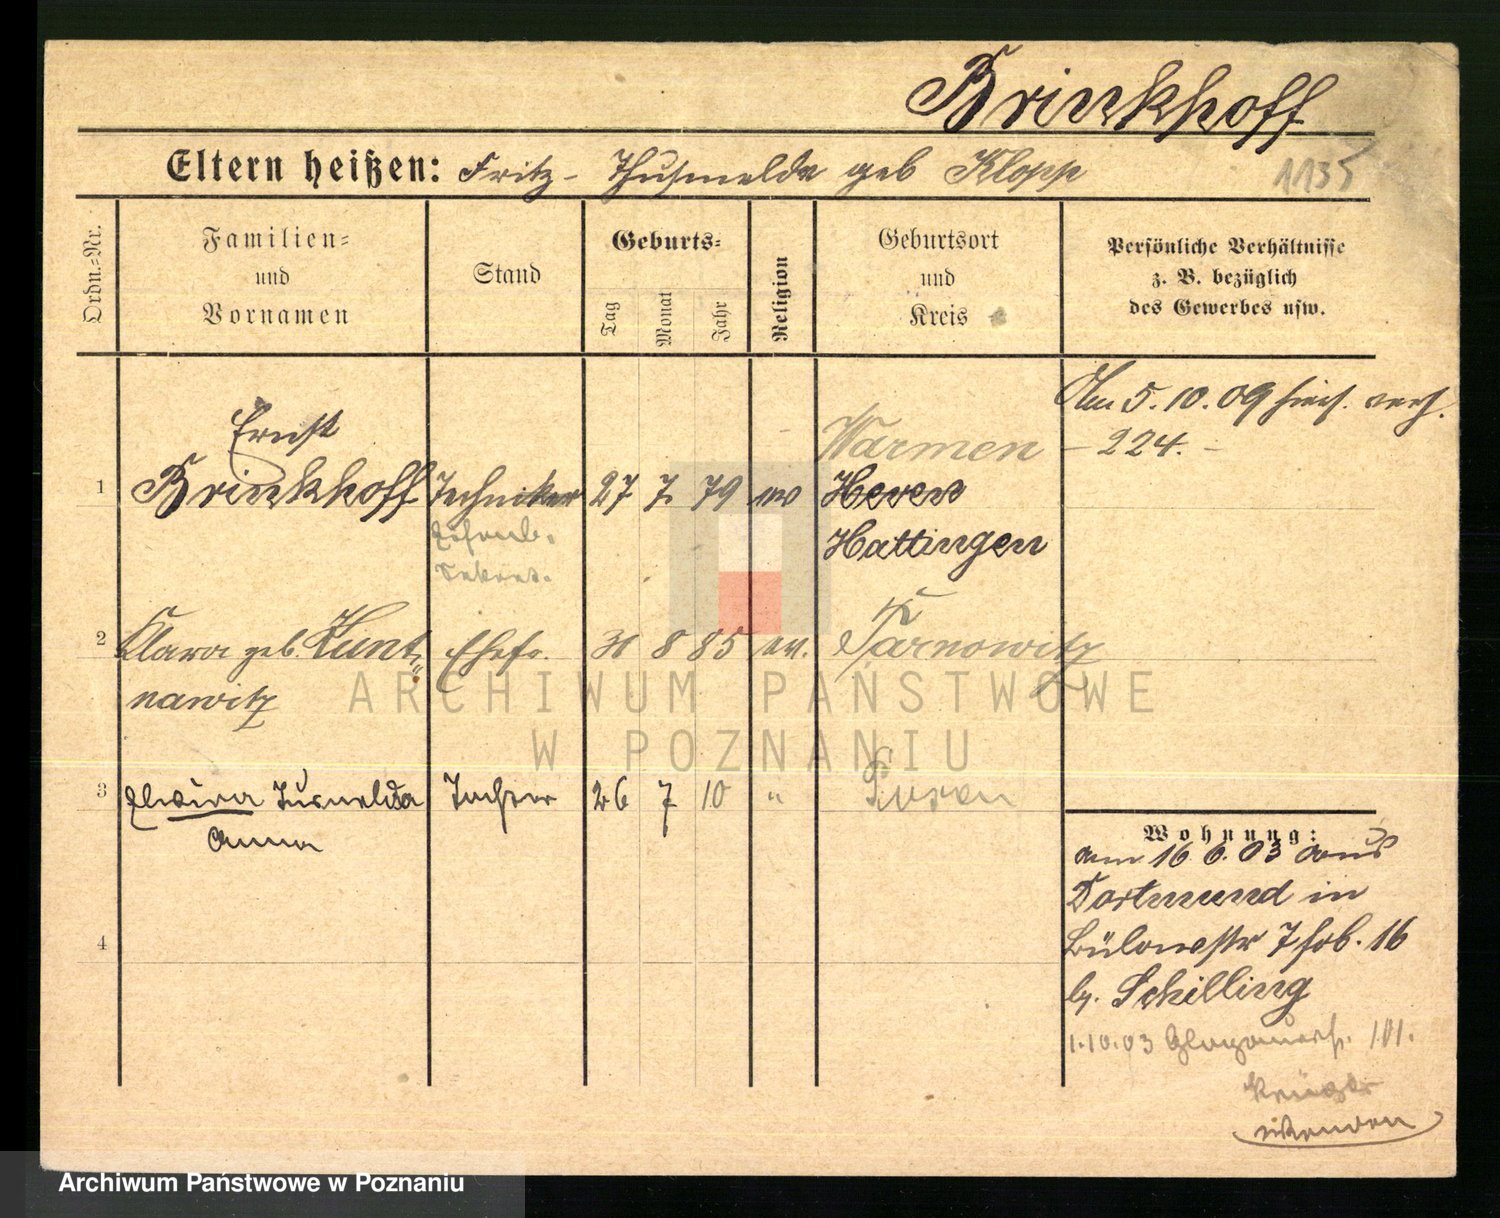 Brinkhoff
Eltern heißen: Fritz - Thusnelda geb Klopp
1135
Ordn.-Nr.
Familien-
und
Vornamen
Stand
Geburts-
Tag
Monat
Jahr
Religion
Geburtsort
und
Kreis
Persönliche Verhältnisse
z. B. bezüglich
des Gewerbes usw.
Am 5.10.09 hier. verh.
- 224. -
Ernst
Warmen
1 Brinkhoff Techniker 27 7. 79 ev Heven
Hattingen
2 Clara geb. Kunt- Ehefr. 31 8 85 ev. Tarnowitz
nawitz
3 Elwira Tusnelda Tochter 26 7 10 " Posen
Anna
4
Wohnung:
am 16 6. 03 aus
Dortmund in
Bülowstr 7 16
b. Schilling
1.10.03 Glogauerst. 101.
Krüger
ARCHIWUM PAŃSTWOWE
W POZNANIU
Archiwum Państwowe w Poznaniu